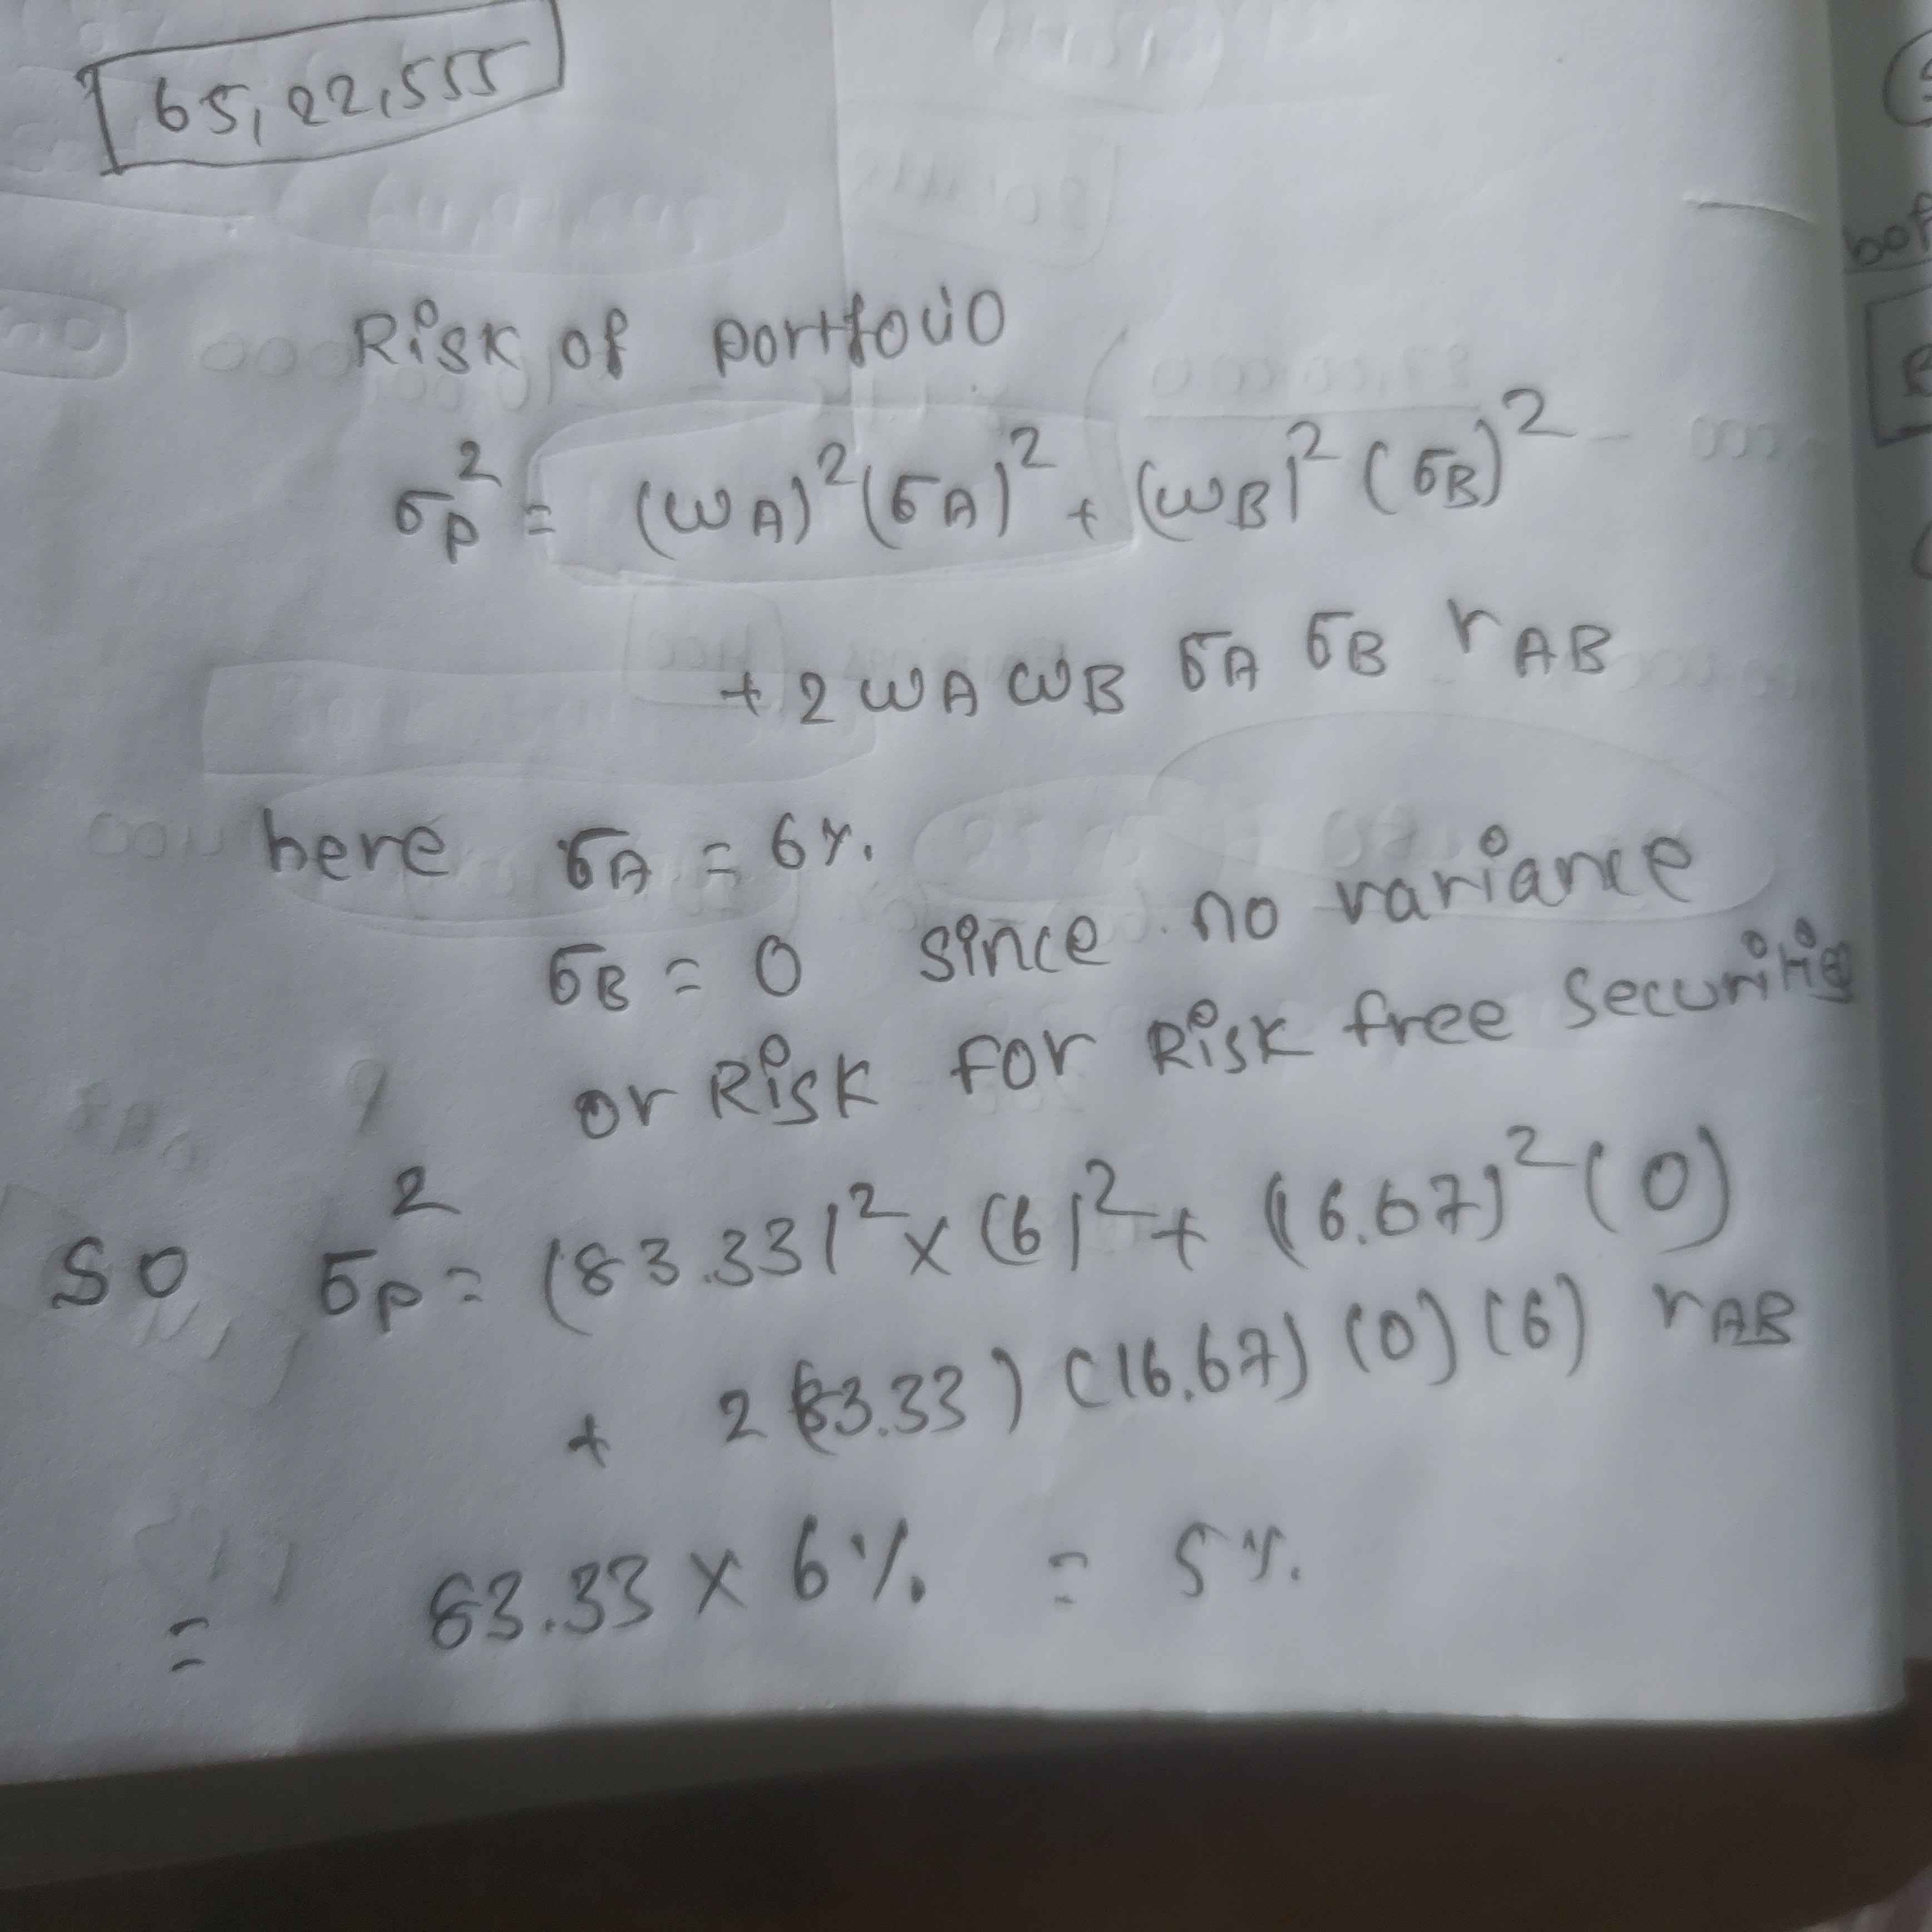 65,22,555
Risk of portfolio
σp² = (ωA)²(σA)² + (ωB)²(σB)²
+ 2 ωA ωB σA σB rAB
here σA = 6%.
σB = 0 since no variance
or Risk for Risk free securities
So σp² = (83.33)² × (6)² + (16.67)² (0)
+ 2 (83.33) (16.67) (0) (6) rAB
= 83.33 × 6% = 5%.